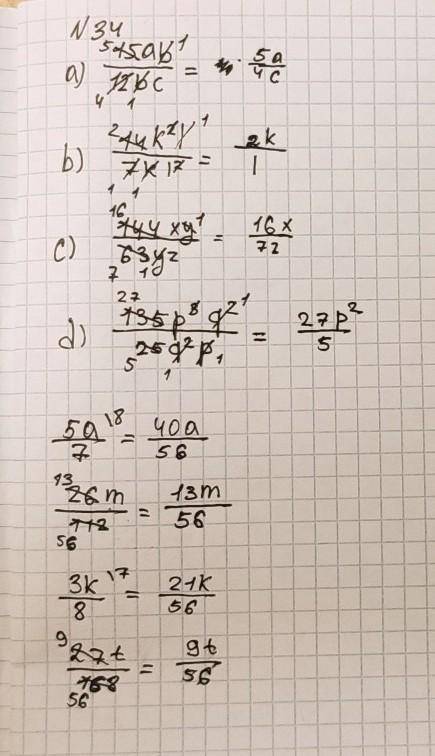 N 34
a) 15ab / 12bc = 5a / 4c
b) 14k²l / 7kl² = 2k / 1
c) 144xy / 63yz = 16x / 7z
d) 135p⁸q² / 25q²p = 27p² / 5
5a\8 / 7 = 40a / 56
26m / 112 = 13m / 56
3k\7 / 8 = 21k / 56
27t / 168 = 9t / 56